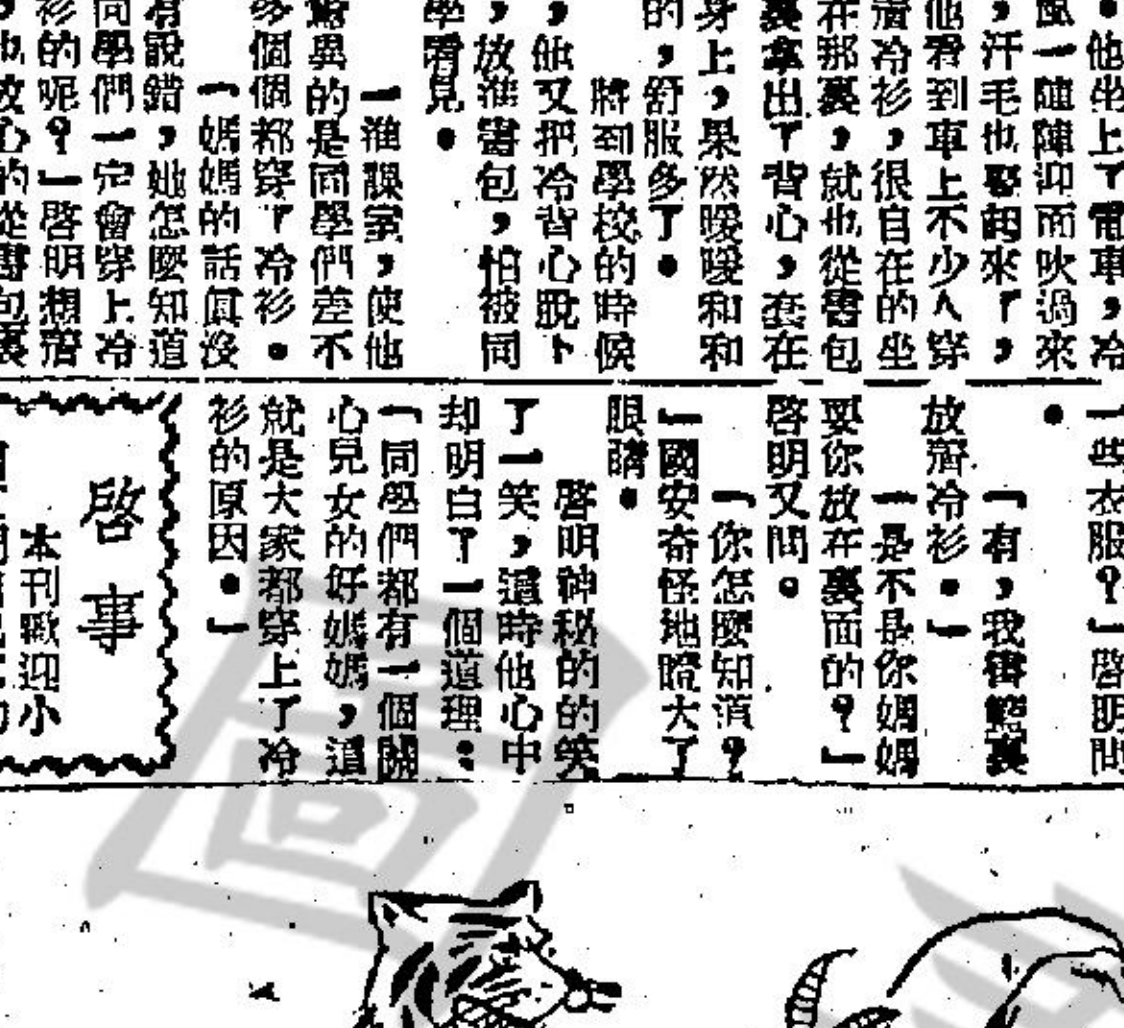 。他坐上了電車，冷
風一陣陣迎面吹過來
，汗毛也要韌來了，
他看到車上不少人穿
着冷衫，很自在的坐
在那裏，就也從書包
裏拿出了背心，套在
身上，果然暖暖和和
的，舒服多了。
將到學校的時候
，他又把冷背心脫下
，放進書包，怕被同
學看見。
一進課室，使他
驚異的是同學們差不
多個個都穿了冷衫。
「媽媽的話眞沒
有說錯，她怎麼知道
同學們一定會穿上冷
衫的呢？」啓明想着
心的從書包裏
一些衣服？」啓明問
。
「有，我書籃裏
放着冷衫。」
「是不是你媽媽
要你放在裏面的？」
啓明又問。
「你怎麼知道？
」國安奇怪地瞪大了
眼睛。
啓明神秘的的笑
了一笑，這時他心中
却明白了一個道理：
「同學們都有一個關
心兒女的好媽媽，這
就是大家都穿上了冷
衫的原因。」
啓事
本刊歡迎小
圖